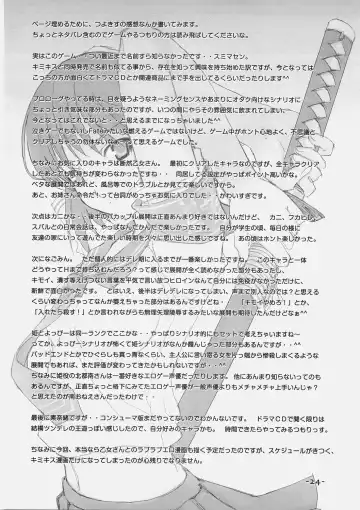 ページ埋めるために、つよきすの感想なんか書いてみます。
ちょっとネタバレ含むのでゲームやるつもりの方は読み飛ばしてください。
実はこのゲーム･･･つい最近まで名前すら知らなかったです･･･スミマセン。
キミキスと同時発売で名前も似てる事から、存在を知って興味を持ち始めた訳ですが、今となっては
こっちの方が面白くてドラマCDとか関連商品にまで手を出してるくらいだったりします^^
プロローグやってる時は、目を疑うようなネーミングセンスやあまりにオタク向けなシナリオに
ちょっと引き気味な部分もあったんですが、いつの間にやらその雰囲気に飲まれてしまい、
今となってはこれでないな･･･と思えるまでになっちゃいました^^
泣きゲーでもないしFateみたいな燃えるゲームではないけど、ゲーム中がホント心地よく、不思議と
クリアしちゃうの勿体ないなぁって思えた作品ですね。
ちなみにお気に入りのキャラは断然乙女さん。　最初にクリアしたキャラなのですが、全キャラクリア
したあとも気持ちが変わらなかったですね･･･　同居してる設定がやっぱポイント高いかな。
ベタな展開だけど、風呂等でのトラブルとか見てて楽しいですから。
あと、お姉さん命令だ　って台詞がめっちゃお気に入りでした･･･かわいすぎです。
次点はカニかな･･･。後半のバカップル展開は正直あんまり好きではないんだけど、　カニ、フカヒレ、
スバルとの日常会話は、やっぱなんだかんで楽しかったです。　自分が学生の頃、毎日の様に
友達の家にいって遊んでた楽しい時期を久々に思い出した感じですね･･･　あの頃はホント楽しかった。
次になごみん。　ただ個人的にはデレ期に入るまでが一番楽しかったですね･･･　このキャラと一体
どうやってHまで持ち込むんだろう？って感じで展開が全く読めなかった部分もあったし、
キモイ、潰すぞえげつない言葉を平気で言い放つヒロインなんて自分には免疫がなかっただけに、
新鮮で面白かったです。　とはいえ、後半はデレになってしまい、声まで別人なのでは？と思える
くらい変わっちゃってなんか萎えちゃった部分はあるんですけどね･･･　「キモイやめろ！」とか
「入れたら殺す！」とか言われながらも無理矢理陵辱するみたいな展開も期待したんだけどなぁ^^
姫とよっぴーは同一ランクでここかな･･･やっぱりシナリオ的にもセットで考えちゃいますね〜
ってか、よっぴーシナリオが怖くて姫シナリオがなんか霞んじゃった部分もあるんですが･･･^^
バッドエンドとかでひぐらしも真っ青なくらい、主人公に言い寄る女を片っ端から惨殺しまくるような
展開でもあれば、また評価が変わってきたかもしれないんですが･･･^^
ちなみに姫役の北都南さんは一番好きなエロゲー声優だったりします。他にあまり知らないってのも
あるんですが、正直ちょっと格下にみてたエロゲー声優が一般声優よりもメチャメチャ上手いんじゃ？
と思えたのが南おねえさんだったわけで･･･
最後に素奈緒ですが、コンシューマ版まだやってないのでわかんないです。　ドラマCDで聞く限りは
結構ツンデレの王道っぽい感じがしたので、自分好みのキャラかも。　時間できたらやってみるつもりっす。
ちなみに今回、本当なら乙女さんとのラブラブエロ漫画も描く予定だったのですが、スケジュールがきつく、
キミキス漫画だけになってしまったのが心残りでなりません。
-24-